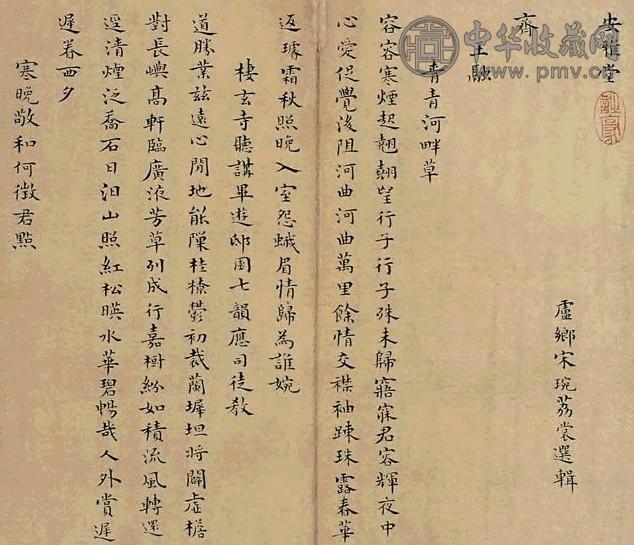 堂
盧鄉宋琬荔裳選輯
齊
王融
青青河畔草
容容寒煙起翹翹望行子行子殊未歸寤寐君容輝夜中
心愛促覺後阻河曲河曲萬里餘情交襟袖踈珠露春華
返璩霜秋照晚入室怨蛾眉情歸為誰婉
棲玄寺聽講畢遊邸園七韻應司徒教
道勝業茲遠心閒地能隟桂橑鬱初裁蘭墀坦將闢虛檐
對長嶼高軒臨廣液芳草列成行嘉樹紛如積流風轉還
逕清煙泛喬石日汨山照紅松暎水華碧暢哉人外賞遲
遲眷西夕
寒晚敬和何徵君點
中华收藏网
www.pmv.cn